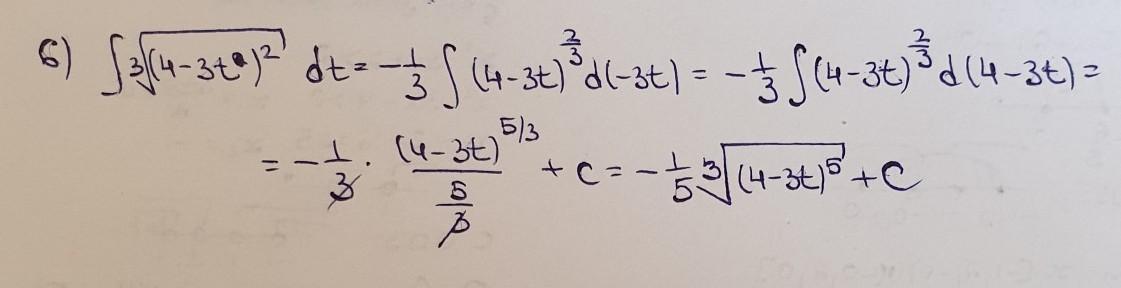 6) ∫ ∛((4-3t)²) dt = -1/3 ∫ (4-3t)^(2/3) d(-3t) = -1/3 ∫ (4-3t)^(2/3) d(4-3t) =
= -1/3 · (4-3t)^(5/3) / (5/3) + C = -1/5 ∛((4-3t)⁵) + C